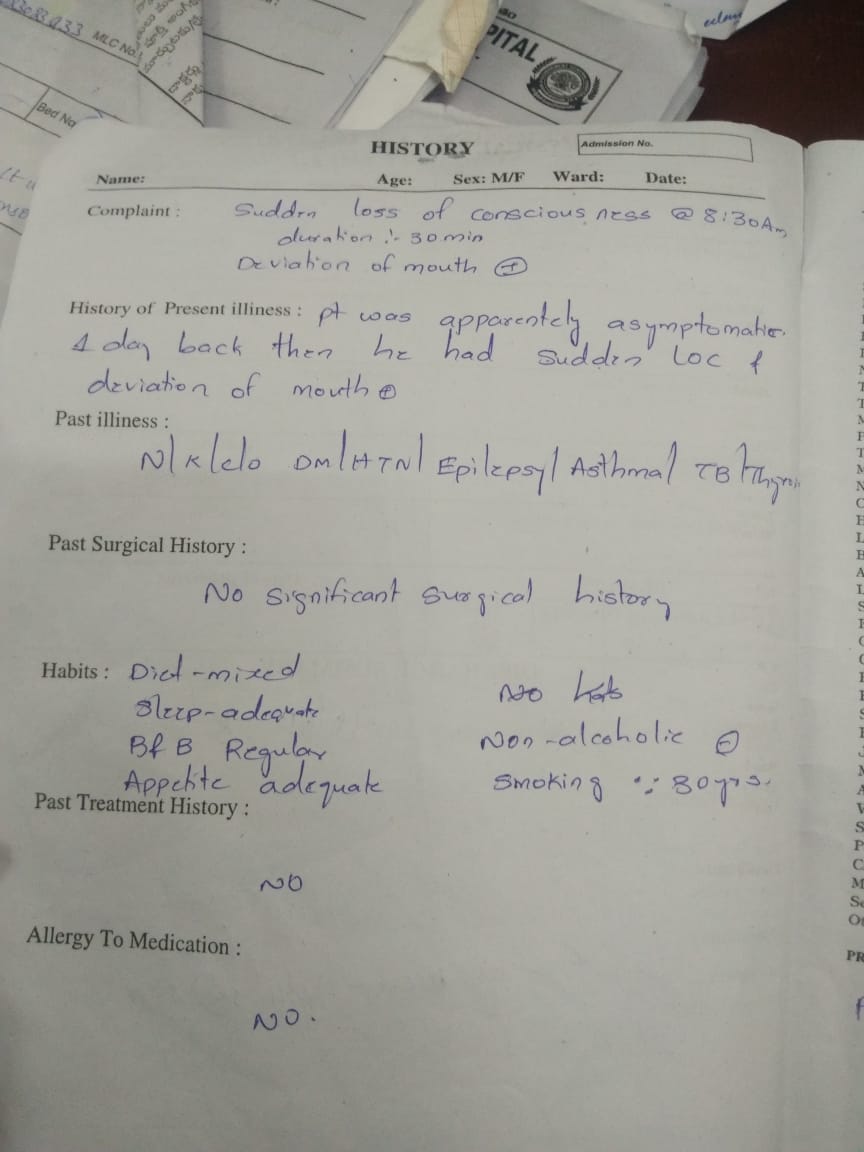 MLC No.
Bed No
PITAL
HISTORY
Admission No.
Name: Age: Sex: M/F Ward: Date:
Complaint : Sudden loss of consciousness @ 8:30Am
duration :- 30 min
Deviation of mouth ⊕
History of Present illness : pt was apparently asymptomatic
1 day back then he had sudden LOC &
deviation of mouth ⊕
Past illness :
N/K/c/o DM/HTN/ Epilepsy/ Asthma/ TB/Thyroi
Past Surgical History :
No significant surgical history
Habits : Diet - mixed
Sleep - adequate
B&B Regular
Appetite adequate
NO
Non-alcoholic
Smoking : 30yrs.
Past Treatment History :
NO
Allergy To Medication :
NO.